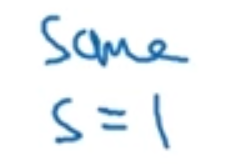 Same
S = 1